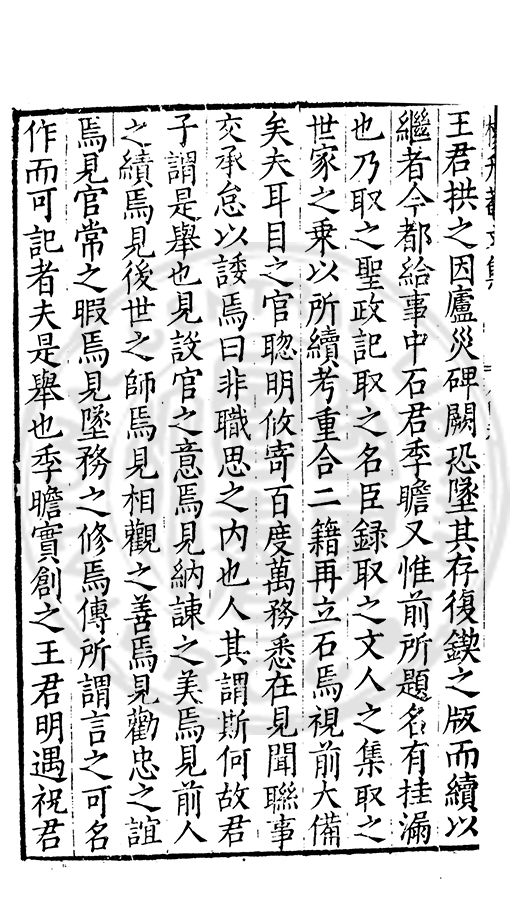 王君拱之因廬災碑闕恐墜其存復鍥之版而續以
繼者今都給事中石君季瞻又惟前所題名有挂漏
也乃取之聖政記取之名臣録取之文人之集取之
世家之乗以所續考重合二籍再立石焉視前大備
矣夫耳目之官聦明攸寄百度萬務悉在見聞聯事
交承怠以諉焉曰非職思之内也人其謂斯何故君
子謂是舉也見設官之意焉見納諌之美焉見前人
之績焉見後世之師焉見相觀之善焉見勸忠之誼
焉見官常之暇焉見墜務之修焉傳所謂言之可名
作而可記者夫是舉也季瞻實創之王君明遇祝君